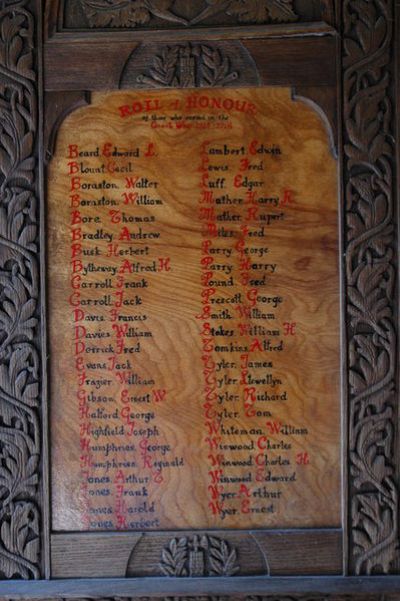 ROLL of HONOUR
of those who served in the
Great War 1914-1918
Beard, Edward L.
Blount, Cecil
Boraston, Walter
Boraston, William
Bore, Thomas
Bradley, Andrew
Busk, Herbert
Bytheway, Alfred H.
Carroll, Frank
Carroll, Jack
Davis, Francis
Davies, William
Derrick, Fred
Evans, Jack
Frazier, William
Gibson, Ernest W.
Halford, George
Highfield, Joseph
Humphries, George
Humphries, Reginald
Jones, Arthur E.
Jones, Frank
Jones, Harold
Jones, Herbert
Lambert, Edwin
Lewis, Fred
Luff, Edgar
Mather, Harry R.
Mather, Rupert
Miles, Fred
Parry, George
Parry, Harry
Pound, Fred
Prescott, George
Smith, William
Stokes, William H.
Tomkins, Alfred
Tyler, James
Tyler, Llewellyn
Tyler, Richard
Tyler, Tom
Whiteman, William
Winwood, Charles
Winwood, Charles H.
Winwood, Edward
Wyer, Arthur
Wyer, Ernest